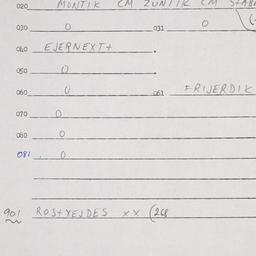 020 MONTIK CM ZUNTIK CM STAB
030 0 031 0
040 EJERNEXT+
050 0
060 0 061 FRIJERDIK
070 0
080 0
081 0
901 ROSTXEJDES xx (268